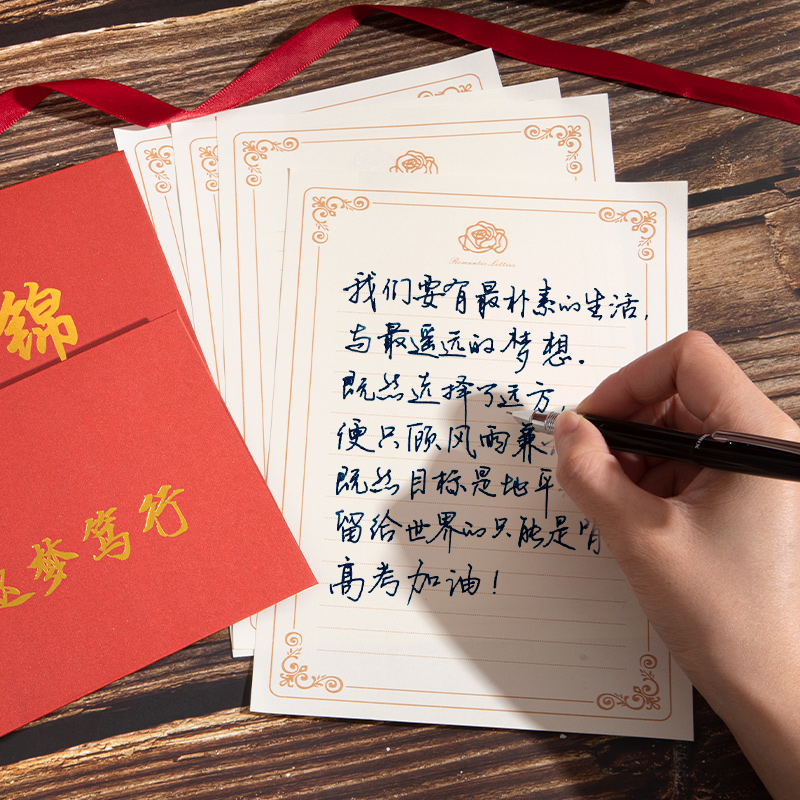 锦
梦笃行
Romantic Letters
我们要有最朴素的生活,
与最遥远的梦想.
既然选择了远方,
便只顾风雨兼
既然目标是地平
留给世界的只能是
高考加油!